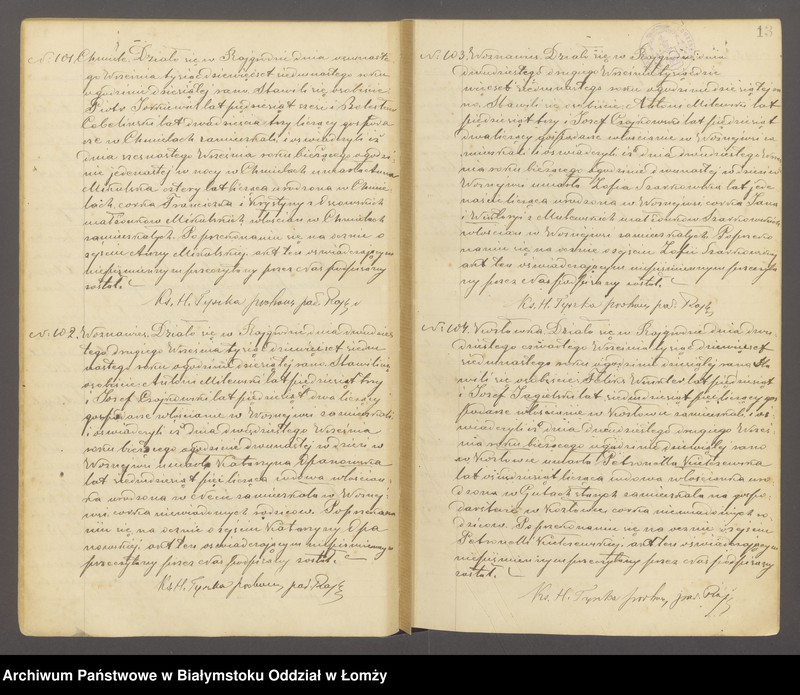 № 101. Chmiele. Działo się w Rajgrodzie dnia osiemnaste-
go Września tysiąc dziewięćset siedmnastego roku
o godzinie dziesiątej rano. Stawili się osobiście
Piotr lat pięćdziesiąt sześć i Bolesław
lat dwadzieścia trzy liczący gospoda-
rze w Chmielach zamieszkali i oświadczyli iż
dnia szesnastego Września roku bieżącego o godzi-
nie jedenastej w nocy w Chmielach umarła Anna
Mikulska cztery lat licząca urodzona w Chmie-
lach, córka Franciszka i Krystyny z
małżonków Mikulskich, włościan w Chmielach
zamieszkałych. Po przekonaniu się na ocznie o
zejściu Anny Mikulskiej, akt ten oświadczającym
niepiśmiennym przeczytany przez Nas podpisany
został.
Ks. H. Tyszka proboszcz par. Rajg.
№ 102. Woznawieś. Działo się w Rajgrodzie, dnia dwudzies-
tego drugiego Września tysiąc dziewięćset siedm-
nastego roku o godzinie dziesiątej rano. Stawili się
osobiście Antoni Milewski lat pięćdziesiąt trzy
i Józef Czajkowski lat pięćdziesiąt dwa liczący
gospodarze włościanie w Woznejwsi zamieszkali
i oświadczyli iż dnia dwudziestego Września
roku bieżącego o godzinie dwunastej w dzień w
Woznejwsi umarła Katarzyna Opanowska
lat siedmdziesiąt pięć licząca wdowa włościan-
ka urodzona w zamieszkała w Woznej-
wsi córka niewiadomych rodziców. Po przekona-
niu się na ocznie o zejściu Katarzyny Opa-
nowskiej akt ten oświadczającym niepiśmiennym
przeczytany przez Nas podpisany został.
Ks. H. Tyszka proboszcz par. Rajg.
13
№ 103. Woznawieś. Działo się w Rajgrodzie, dnia
dwudziestego drugiego Września tysiąc dzie-
więćset siedmnastego roku o godzinie dziesiątej ra-
no. Stawili się osobiście Antoni Milewski lat
pięćdziesiąt trzy i Józef Czajkowski lat pięćdziesiąt
dwa liczący gospodarze włościanie w Woznejwsi za-
mieszkali i oświadczyli iż dnia dwudziestego Wrze-
śnia roku bieżącego o godzinie dwunastej w dzień w
Woznejwsi umarła Zofia Szarkowska lat jede-
naście licząca urodzona w Woznejwsi córka Jana
i z Milewskich małżonków Szarkowskich
włościan w Woznejwsi zamieszkałych. Po przeko-
naniu się na ocznie o zejściu Zofii Szarkowskiej
akt ten oświadczającym niepiśmiennym przeczyta-
ny przez Nas podpisany został.
Ks. H. Tyszka proboszcz par. Rajg.
№ 104. Kosłówka. Działo się w Rajgrodzie dnia dwu-
dziestego czwartego Września tysiąc dziewięćset
siedmnastego roku o godzinie dziesiątej rano. Sta-
wili się osobiście Feliks lat pięćdziesiąt
i Józef Jagubski lat siedmdziesiąt pięć liczący gos-
podarze włościanie w Kosłówce zamieszkali i oś-
wiadczyli iż dnia dwudziestego drugiego Wrześ-
nia roku bieżącego o godzinie dziewiątej rano
w Kosłówce umarła Petronella
lat ośmdziesiąt licząca wdowa włościanka uro-
dzona w zamieszkała na gospo-
darstwie w Kosłówce córka niewiadomych ro-
dziców. Po przekonaniu się na ocznie o zejściu
Petronelli akt ten oświadczającym
niepiśmiennym przeczytany przez Nas podpisany
został.
Ks. H. Tyszka prob. par. Rajg.
Archiwum Państwowe w Białymstoku Oddział w Łomży